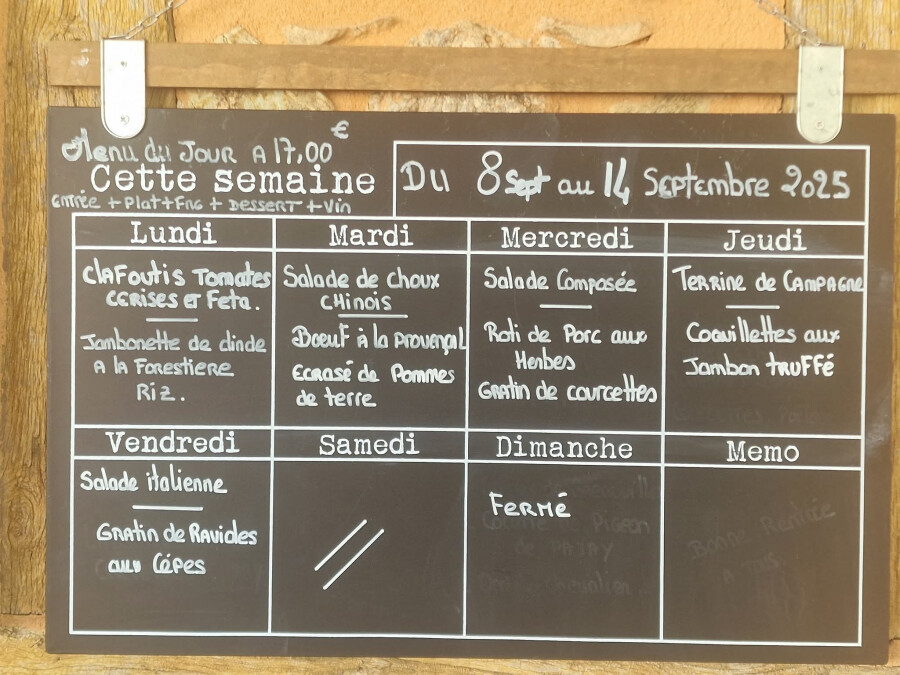 Menu du JOUR A 17,00 €
Cette semaine
ENTRÉE + Plat + FRG + DESSERT + Vin
Du 8 Sept au 14 Septembre 2025
Lundi
Clafoutis Tomates
CERISES et Feta.
Jambonette de dinde
A la Forestiere
Riz.
Mardi
Salade de choux
CHinois
Boeuf à la provençal
ECRASÉ de Pommes
de terre
Mercredi
Salade Composée
Roti de Porc aux
Herbes
GRATIN de courcettes
Jeudi
TERRINE de CAMPAGNE
Coquillettes aux
Jambon TRUFFÉ
Vendredi
Salade italienne
GRATIN de Ravioles
aux Cépes
Samedi
Dimanche
FERMÉ
Pigeon
Memo
Bonne Rentrée
A Tous.